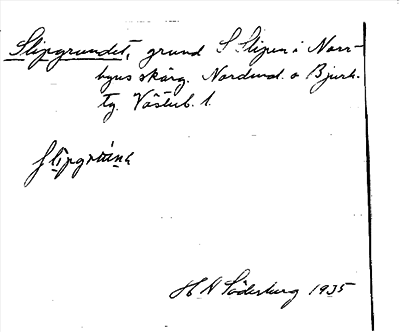 Slipgrundet, grund S Slipen i Norr-
byns skärg. Nordmal. o Bjurh.
tg. Västerb. l.
H N Söderburg 1935